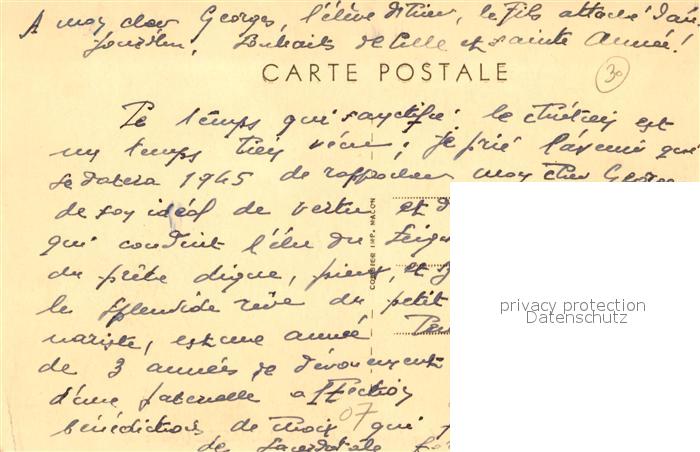 A mon cher Georges, l'élève d'hier, le fils attaché d'au-
jourd'hui, Souhaits de belle et sainte Année!
CARTE POSTALE
30
Le temps qui sanctifie le chrétien est
un temps bien vécu; je prie l'avenir que
se datera 1945 de rapprocher mon cher Georges
de son idéal de vertu et d
qui conduit l'élu du Seign
du prêtre digne, pieux, et z
le splendide rêve du petit
nariste, est une année
de 3 années de dévouement
d'une paternelle affection
07
bénédictions de choix qui
de sacerdotale
COMBIER IMP. MACON
privacy protection
Datenschutz